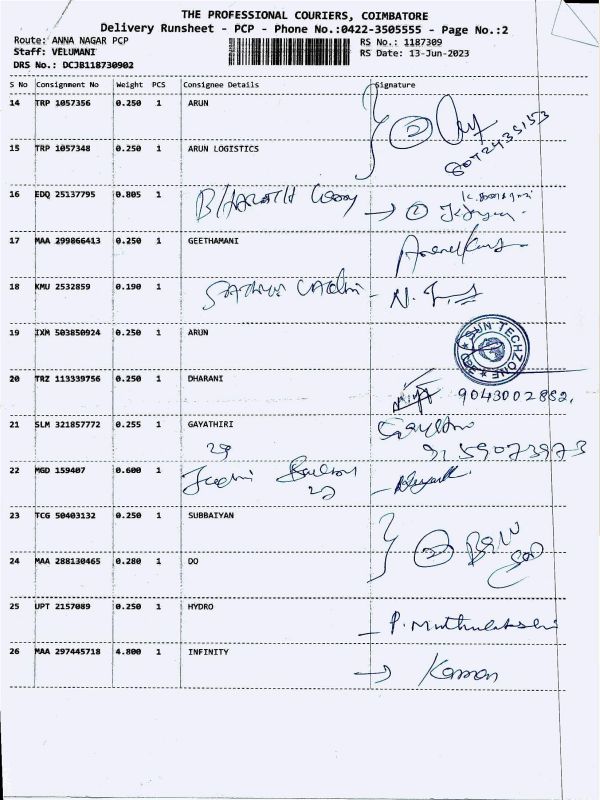 THE PROFESSIONAL COURIERS, COIMBATORE
Delivery Runsheet - PCP - Phone No.:0422-3505555 - Page No.:2
Route: ANNA NAGAR PCP RS No.: 1187309
Staff: VELUMANI RS Date: 13-Jun-2023
DRS No.: DCJB118730902
S No Consignment No Weight PCS Consignee Details Signature
14 TRP 1057356 0.250 1 ARUN
2
15 TRP 1057348 0.250 1 ARUN LOGISTICS
16 EDQ 25137795 0.805 1 BHARATH
17 MAA 299866413 0.250 1 GEETHAMANI
18 KMU 2532859 0.190 1
19 IXM 503850924 0.250 1 ARUN
SUN TECHZONE
20 TRZ 113339756 0.250 1 DHARANI
9043002882.
21 SLM 321857772 0.255 1 GAYATHIRI
29 9159073973
22 MGD 159407 0.600 1
23 TCG 50403132 0.250 1 SUBBAIYAN
2
24 MAA 288130465 0.280 1 DO
25 UPT 2157089 0.250 1 HYDRO P. Muthulakshmi
26 MAA 297445718 4.800 1 INFINITY